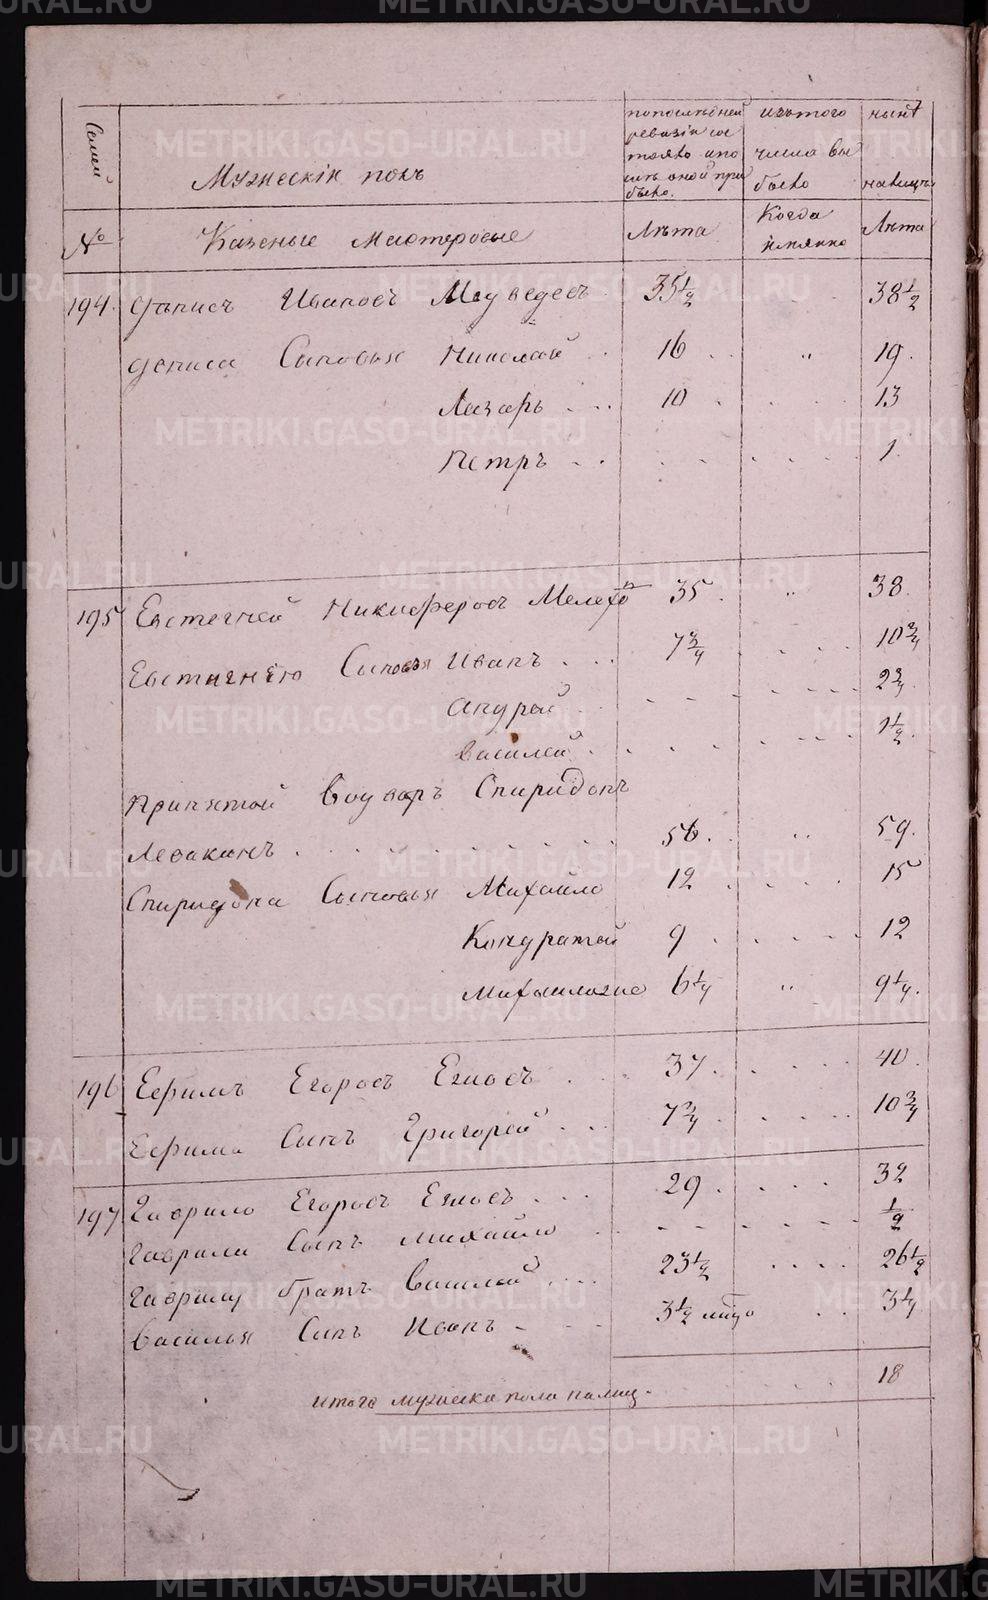 Семей
Мужескій полъ
по последней ревизіи состояло и после оной прибыло.
изътого числа выбыло
ныне налицъ
№ Казеные Мастеровые Лѣта Когда имянно Лѣта
194. Денисъ Ивановъ Медведевъ 35 1/2 38 1/2
Дениса Сыновья Николай 16 " 19.
Лазарь 10 13
Петръ 1.
195 Евстегней Никифоровъ Мелехо 35 " 38.
Евстигнѣю Сыновья Иванъ 7 3/4 10 3/4
Андрей 2 3/4.
Василей 1 1/2.
Принятой Воударъ Спиридонъ
Левакинъ 56. " 59.
Спиридона Сыновья Михайло 12 15
Кондратей 9 12
6 1/4 " 9 1/4.
196 Ефимъ Егоровъ 37. 40.
Ефима Сынъ Григорей 7 3/4 10 3/4
197 Гаврило Егоровъ 29. 32
Гаврилы Сынъ Михайло 1/2
Гаврилу братъ Василей 23 1/2 26 1/2
Василья Сынъ Иванъ 3 1/2 3 1/4
итого мужеска пола налиц. 18
METRIKI.GASO-URAL.RU